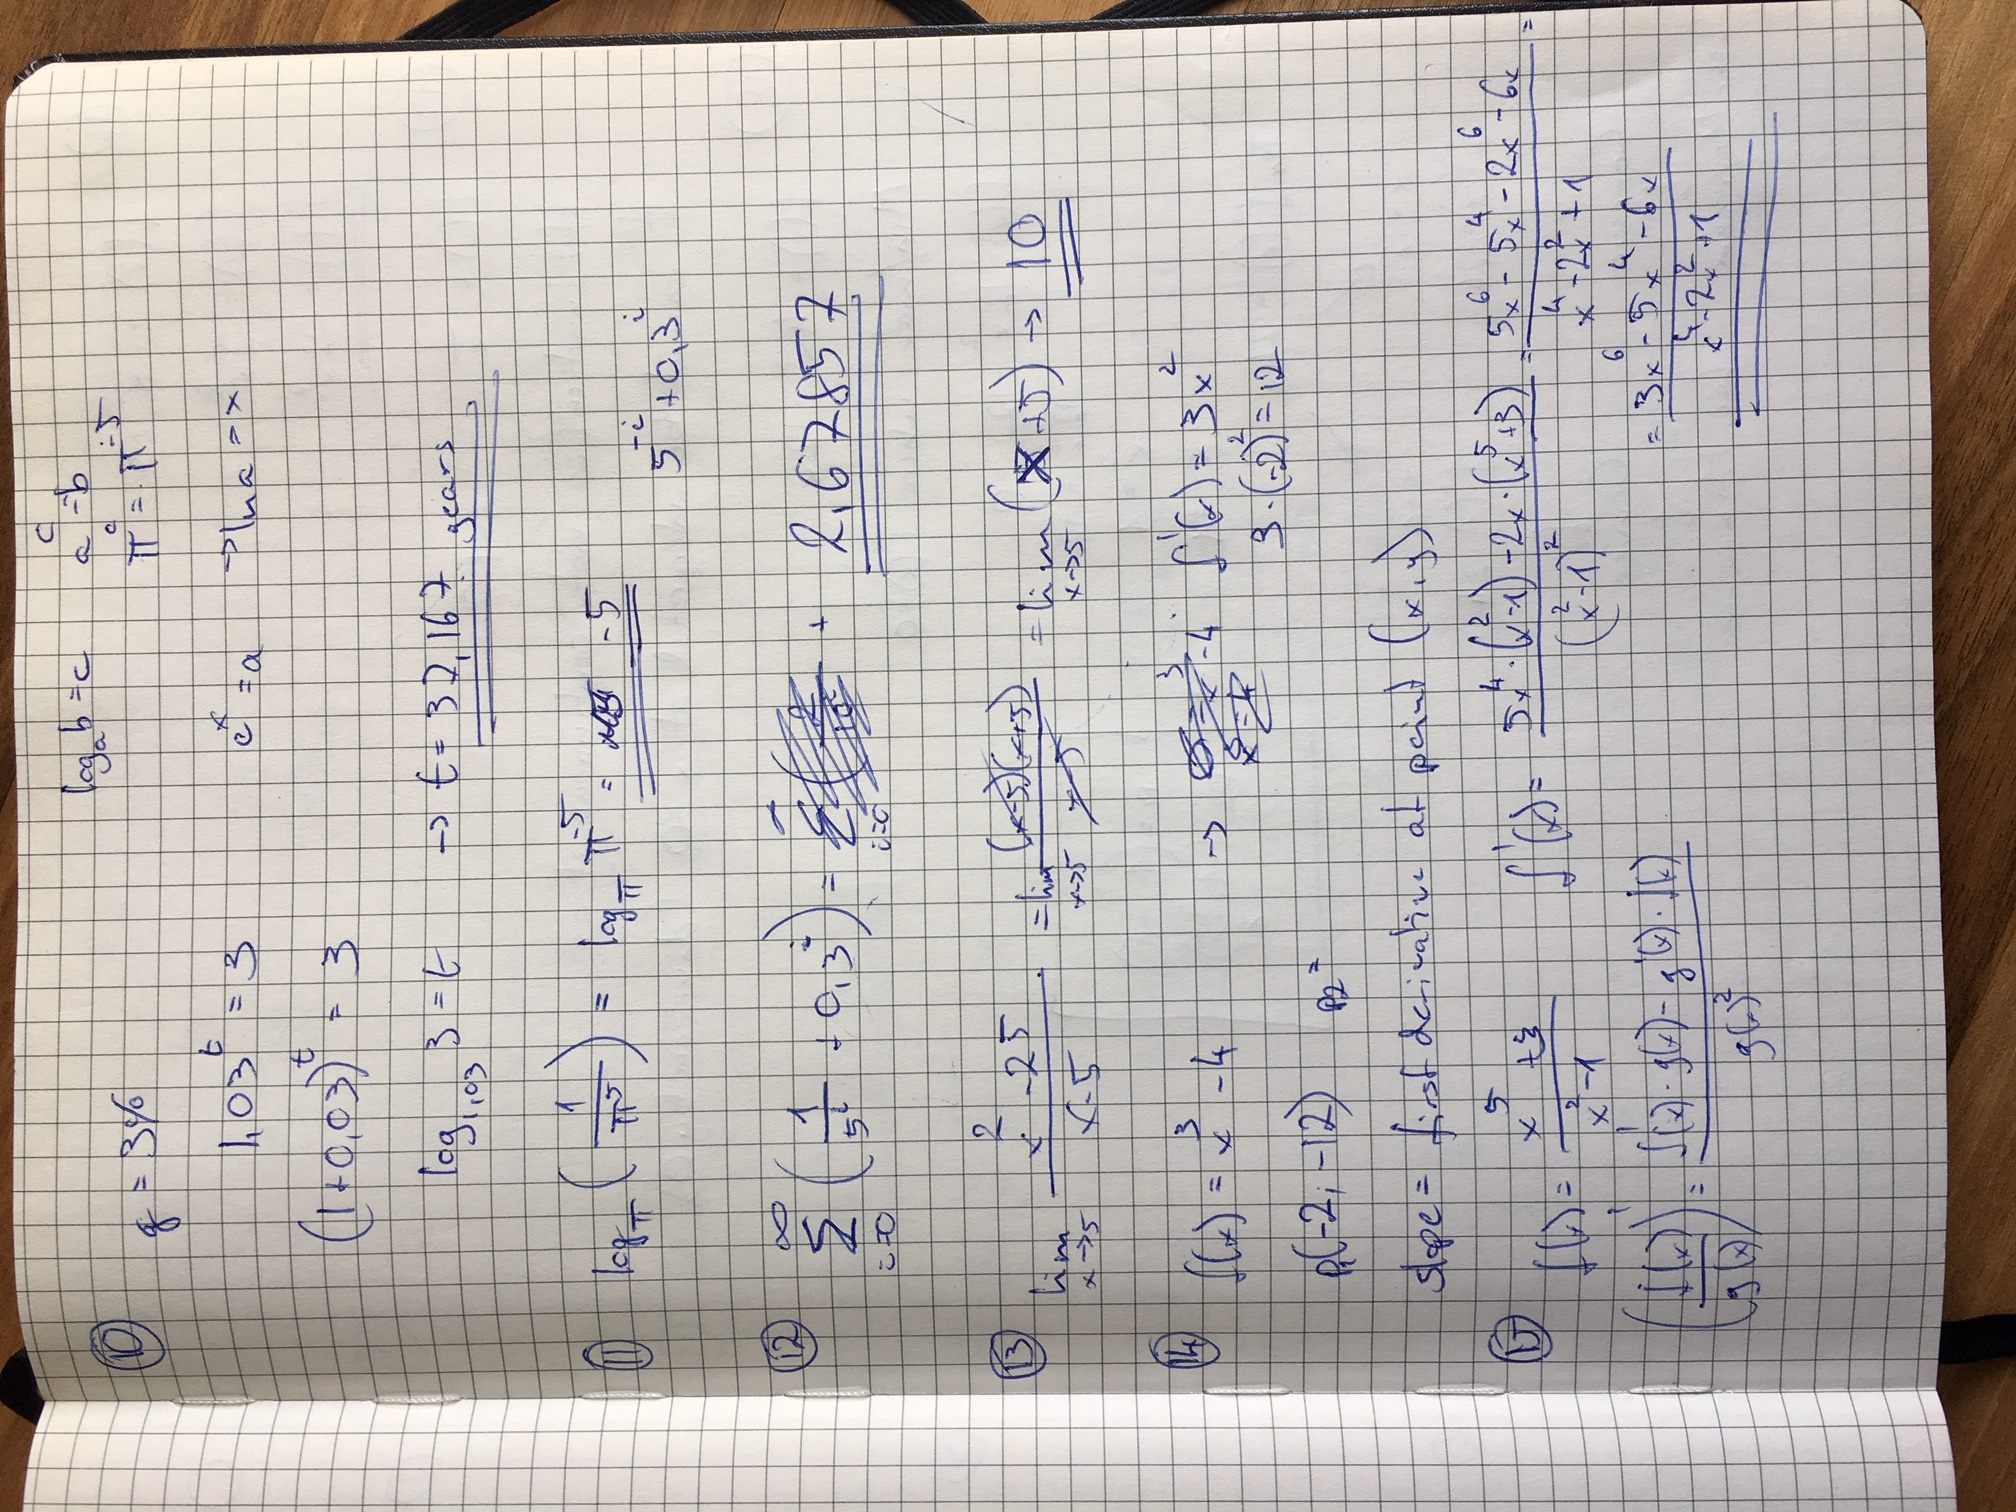 log_a b = c    a^c = b
⑩    π^c = π^-5
g = 3%
1,03^t = 3    e^x = a    → ln a = x
(1+0,03)^t = 3
log_1,03 3 = t    → t = 37,167 years
⑪ log_π (1/π^5) = log_π π^-5 = -5
5^-i + 0,3^i
⑫ ∑_{i=0}^{∞} (1/5^i + 0,3^i) = + 2,67857
⑬ lim_{x→5} (x^2 - 25)/(x-5) = lim_{x→5} (x-5)(x+5)/(x-5) = lim_{x→5} (x+5) → 10
⑭ f(x) = x^3 - 4    → -4    f'(x) = 3x^2
3·(-2)^2 = 12
P1(-2; -12)    P2 =
slope = first derivative at point (x,y)
⑮ f(x) = (x^5 + 3)/(x^2 - 1)    f'(x) = (5x^4·(x^2-1) - 2x·(x^5+3))/(x^2-1)^2 = (5x^6 - 5x^4 - 2x^6 - 6x)/(x^4 - 2x^2 + 1) =
(f(x)/g(x))' = (f'(x)·g(x) - g'(x)·f(x))/g(x)^2    = (3x^6 - 5x^4 - 6x)/(x^4 - 2x^2 + 1)